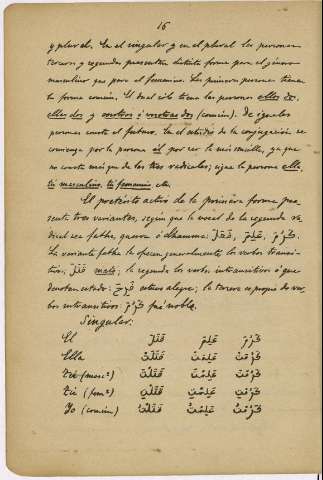 16
y plural. En el singular y en el plural las personas
tercera y segunda presentan distinta forma para el género
masculino que para el femenino. Las primeras personas tienen
la forma común. El dual sólo tiene las personas ellos dos,
ellas dos y vosotros ó vosotras dos (común). De iguales
personas consta el futuro. En el estudio de la conjugación se
comienza por la persona él por ser la más sencilla, ya que
no consta más que de las tres radicales; sigue la persona ella,
tú masculino, tú femenino etc.
El pretérito activo de la primera forma pre-
senta tres variantes, según que la vocal de la segunda ra-
dical sea fatha, quesra ó dhamma: فَعَلَ, عَلِمَ, كَرُمَ.
La variante fatha la ofrecen generalmente los verbos transi-
tivos: قَتَلَ mató; la segunda los verbos intransitivos ó que
denotan estado: فَرِحَ estuvo alegre; la tercera es propia de ver-
bos intransitivos: كَرُمَ fué noble.
Singular:
El قَتَلَ عَلِمَ كَرُمَ
Ella قَتَلَتْ عَلِمَتْ كَرُمَتْ
tú (masc.º) قَتَلْتَ عَلِمْتَ كَرُمْتَ
tú (fem.º) قَتَلْتِ عَلِمْتِ كَرُمْتِ
Yo (común) قَتَلْتُ عَلِمْتُ كَرُمْتُ